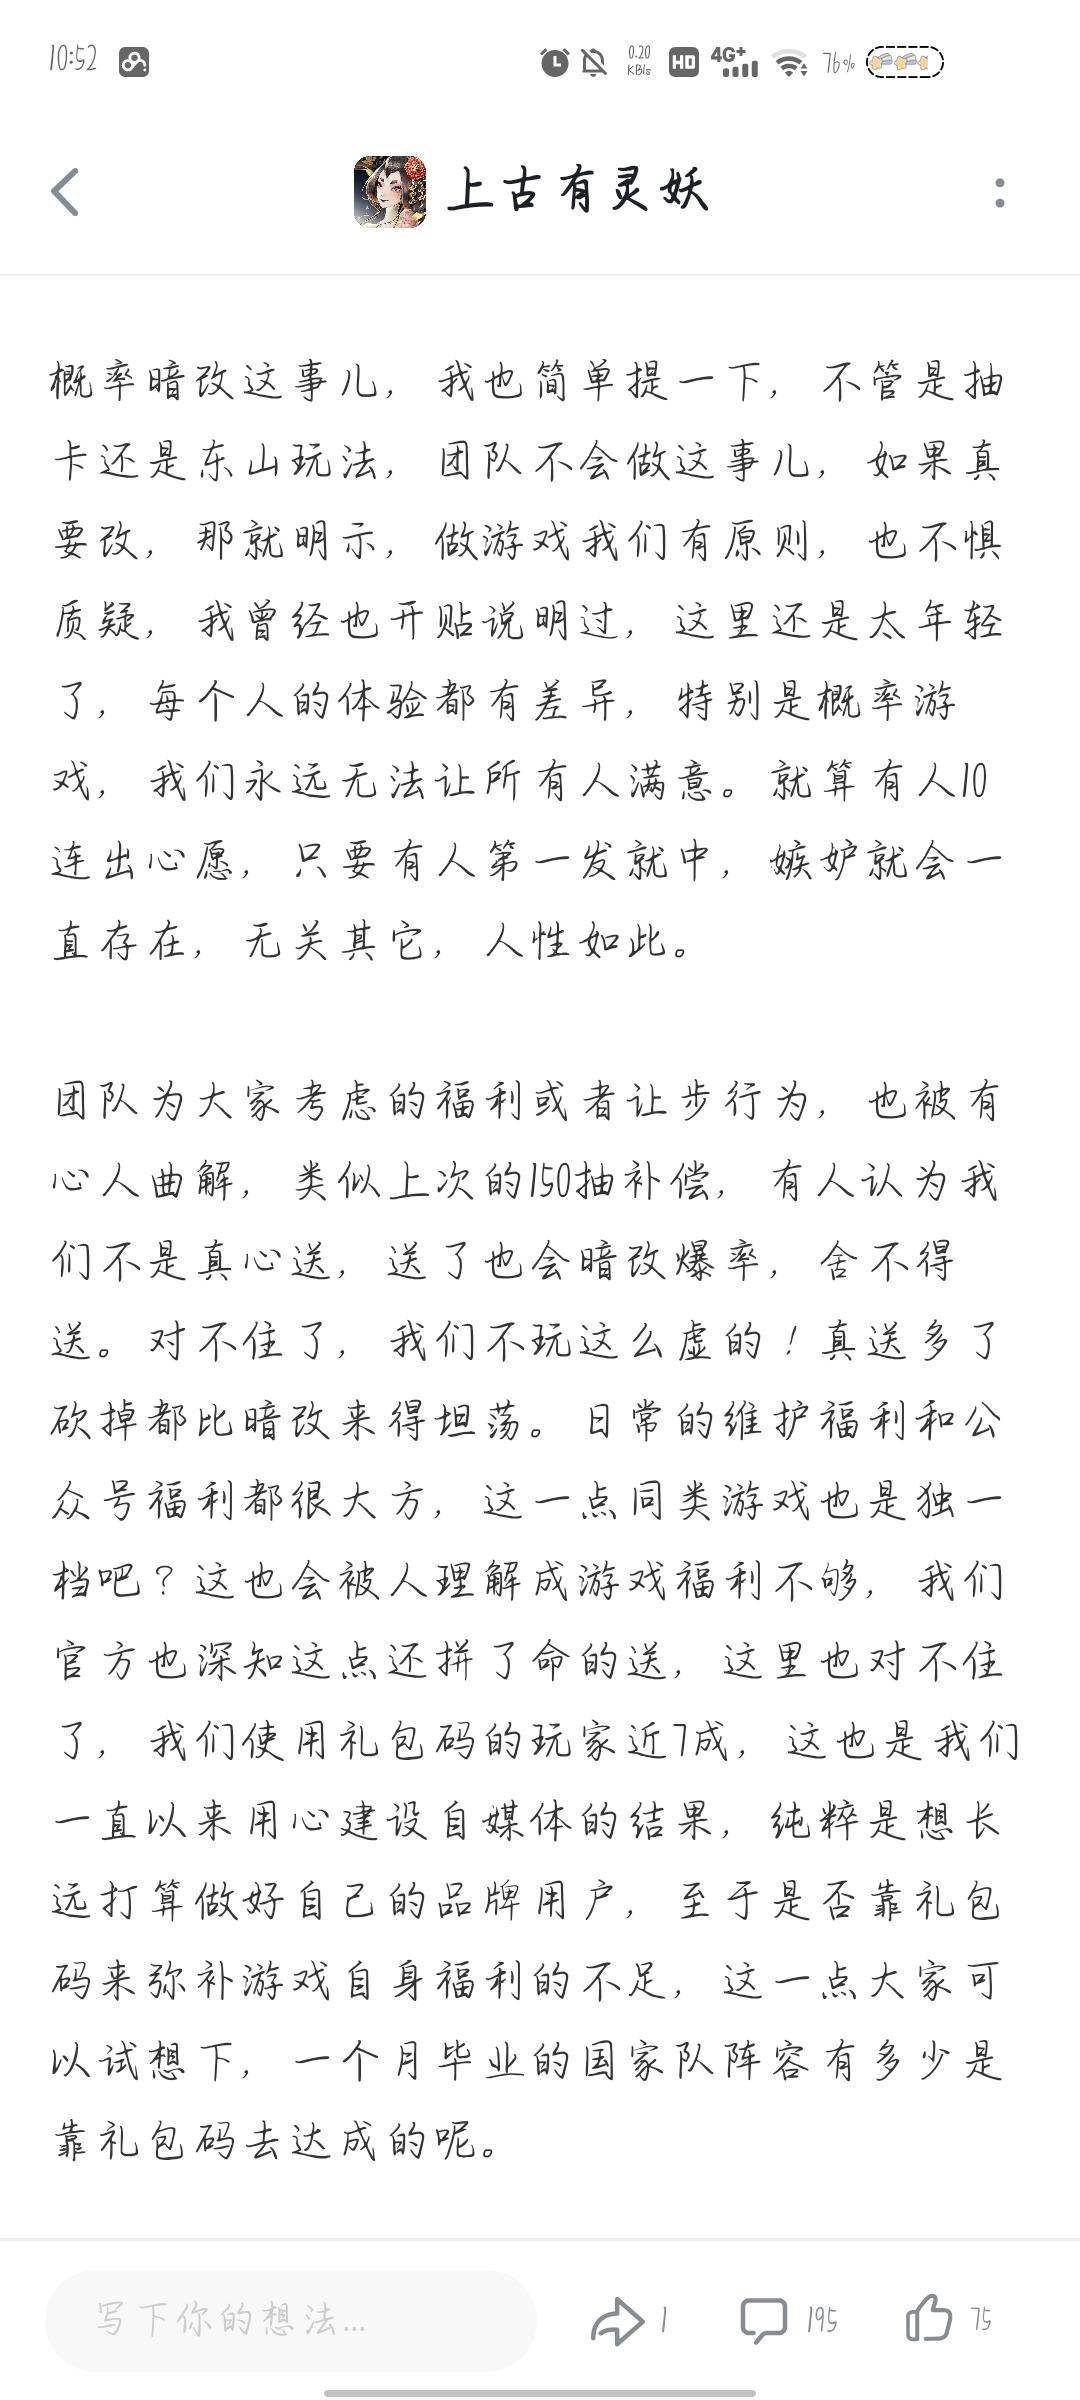 10:52
0.20
KB/s
HD
4G+
76%
上古有灵妖
概率暗改这事儿，我也简单提一下，不管是抽
卡还是东山玩法，团队不会做这事儿，如果真
要改，那就明示，做游戏我们有原则，也不惧
质疑，我曾经也开贴说明过，这里还是太年轻
了，每个人的体验都有差异，特别是概率游
戏，我们永远无法让所有人满意。就算有人10
连出心愿，只要有人第一发就中，嫉妒就会一
直存在，无关其它，人性如此。
团队为大家考虑的福利或者让步行为，也被有
心人曲解，类似上次的150抽补偿，有人认为我
们不是真心送，送了也会暗改爆率，舍不得
送。对不住了，我们不玩这么虚的！真送多了
砍掉都比暗改来得坦荡。日常的维护福利和公
众号福利都很大方，这一点同类游戏也是独一
档吧？这也会被人理解成游戏福利不够，我们
官方也深知这点还拼了命的送，这里也对不住
了，我们使用礼包码的玩家近7成，这也是我们
一直以来用心建设自媒体的结果，纯粹是想长
远打算做好自己的品牌用户，至于是否靠礼包
码来弥补游戏自身福利的不足，这一点大家可
以试想下，一个月毕业的国家队阵容有多少是
靠礼包码去达成的呢。
写下你的想法...
1
195
75